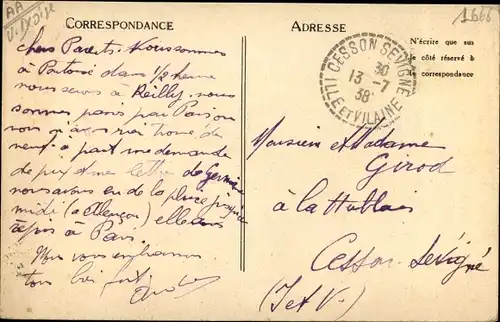 AA
V. Dxoise
1666
CORRESPONDANCE
chers Parents. Nous sommes
à Pontoise dans 1/2 heure
nous serons à Reilly. nous
sommes passés par Paris ou
nous n'avons rien trouvé de
neuf. a part une demande
de prix et une lettre de Germaine
nous avons eu de la pluie jusqu'à
midi (a Alençon) elle
à Paris.
Nous vous embrassons
tous bien fort
ADRESSE
N'écrire que sur
le côté réservé à
la correspondance
CESSON SEVIGNE
30
13 -7
38
ILLE ET VILAINE
Monsieur et Madame
Girod
à la Hublais
Cesson Sévigné
(I et V.)